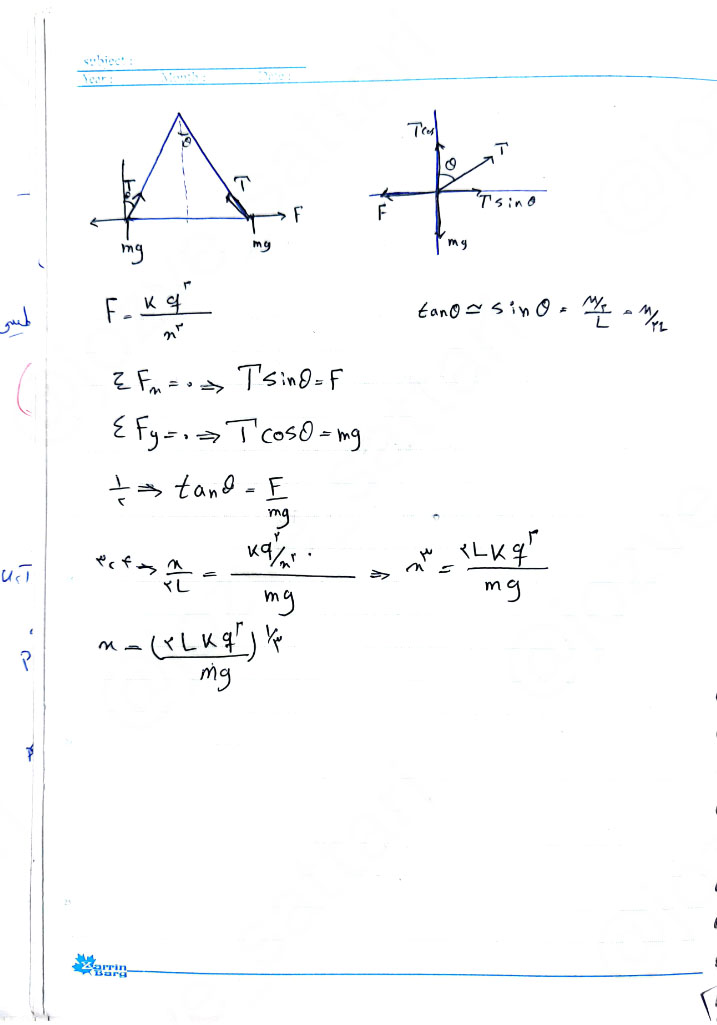 subject :
Year : Month : Date :
θ
T T F
θ
mg mg
Tcos
θ T
F T sin θ
mg
F = K q^۲ / x^۲
tanθ ≃ sin θ = x/۲ / L = x/۲L
Σ Fx = ۰ ⇒ T sinθ = F
Σ Fy = ۰ ⇒ T cosθ = mg
۱/۲ ⇒ tanθ = F / mg
۳,۴ → x / ۲L = Kq^۲/x^۲ / mg ⇒ x^۳ = ۲LKq^۲ / mg
x = (۲LKq^۲ / mg)^۱/۳
Karrin
Barg